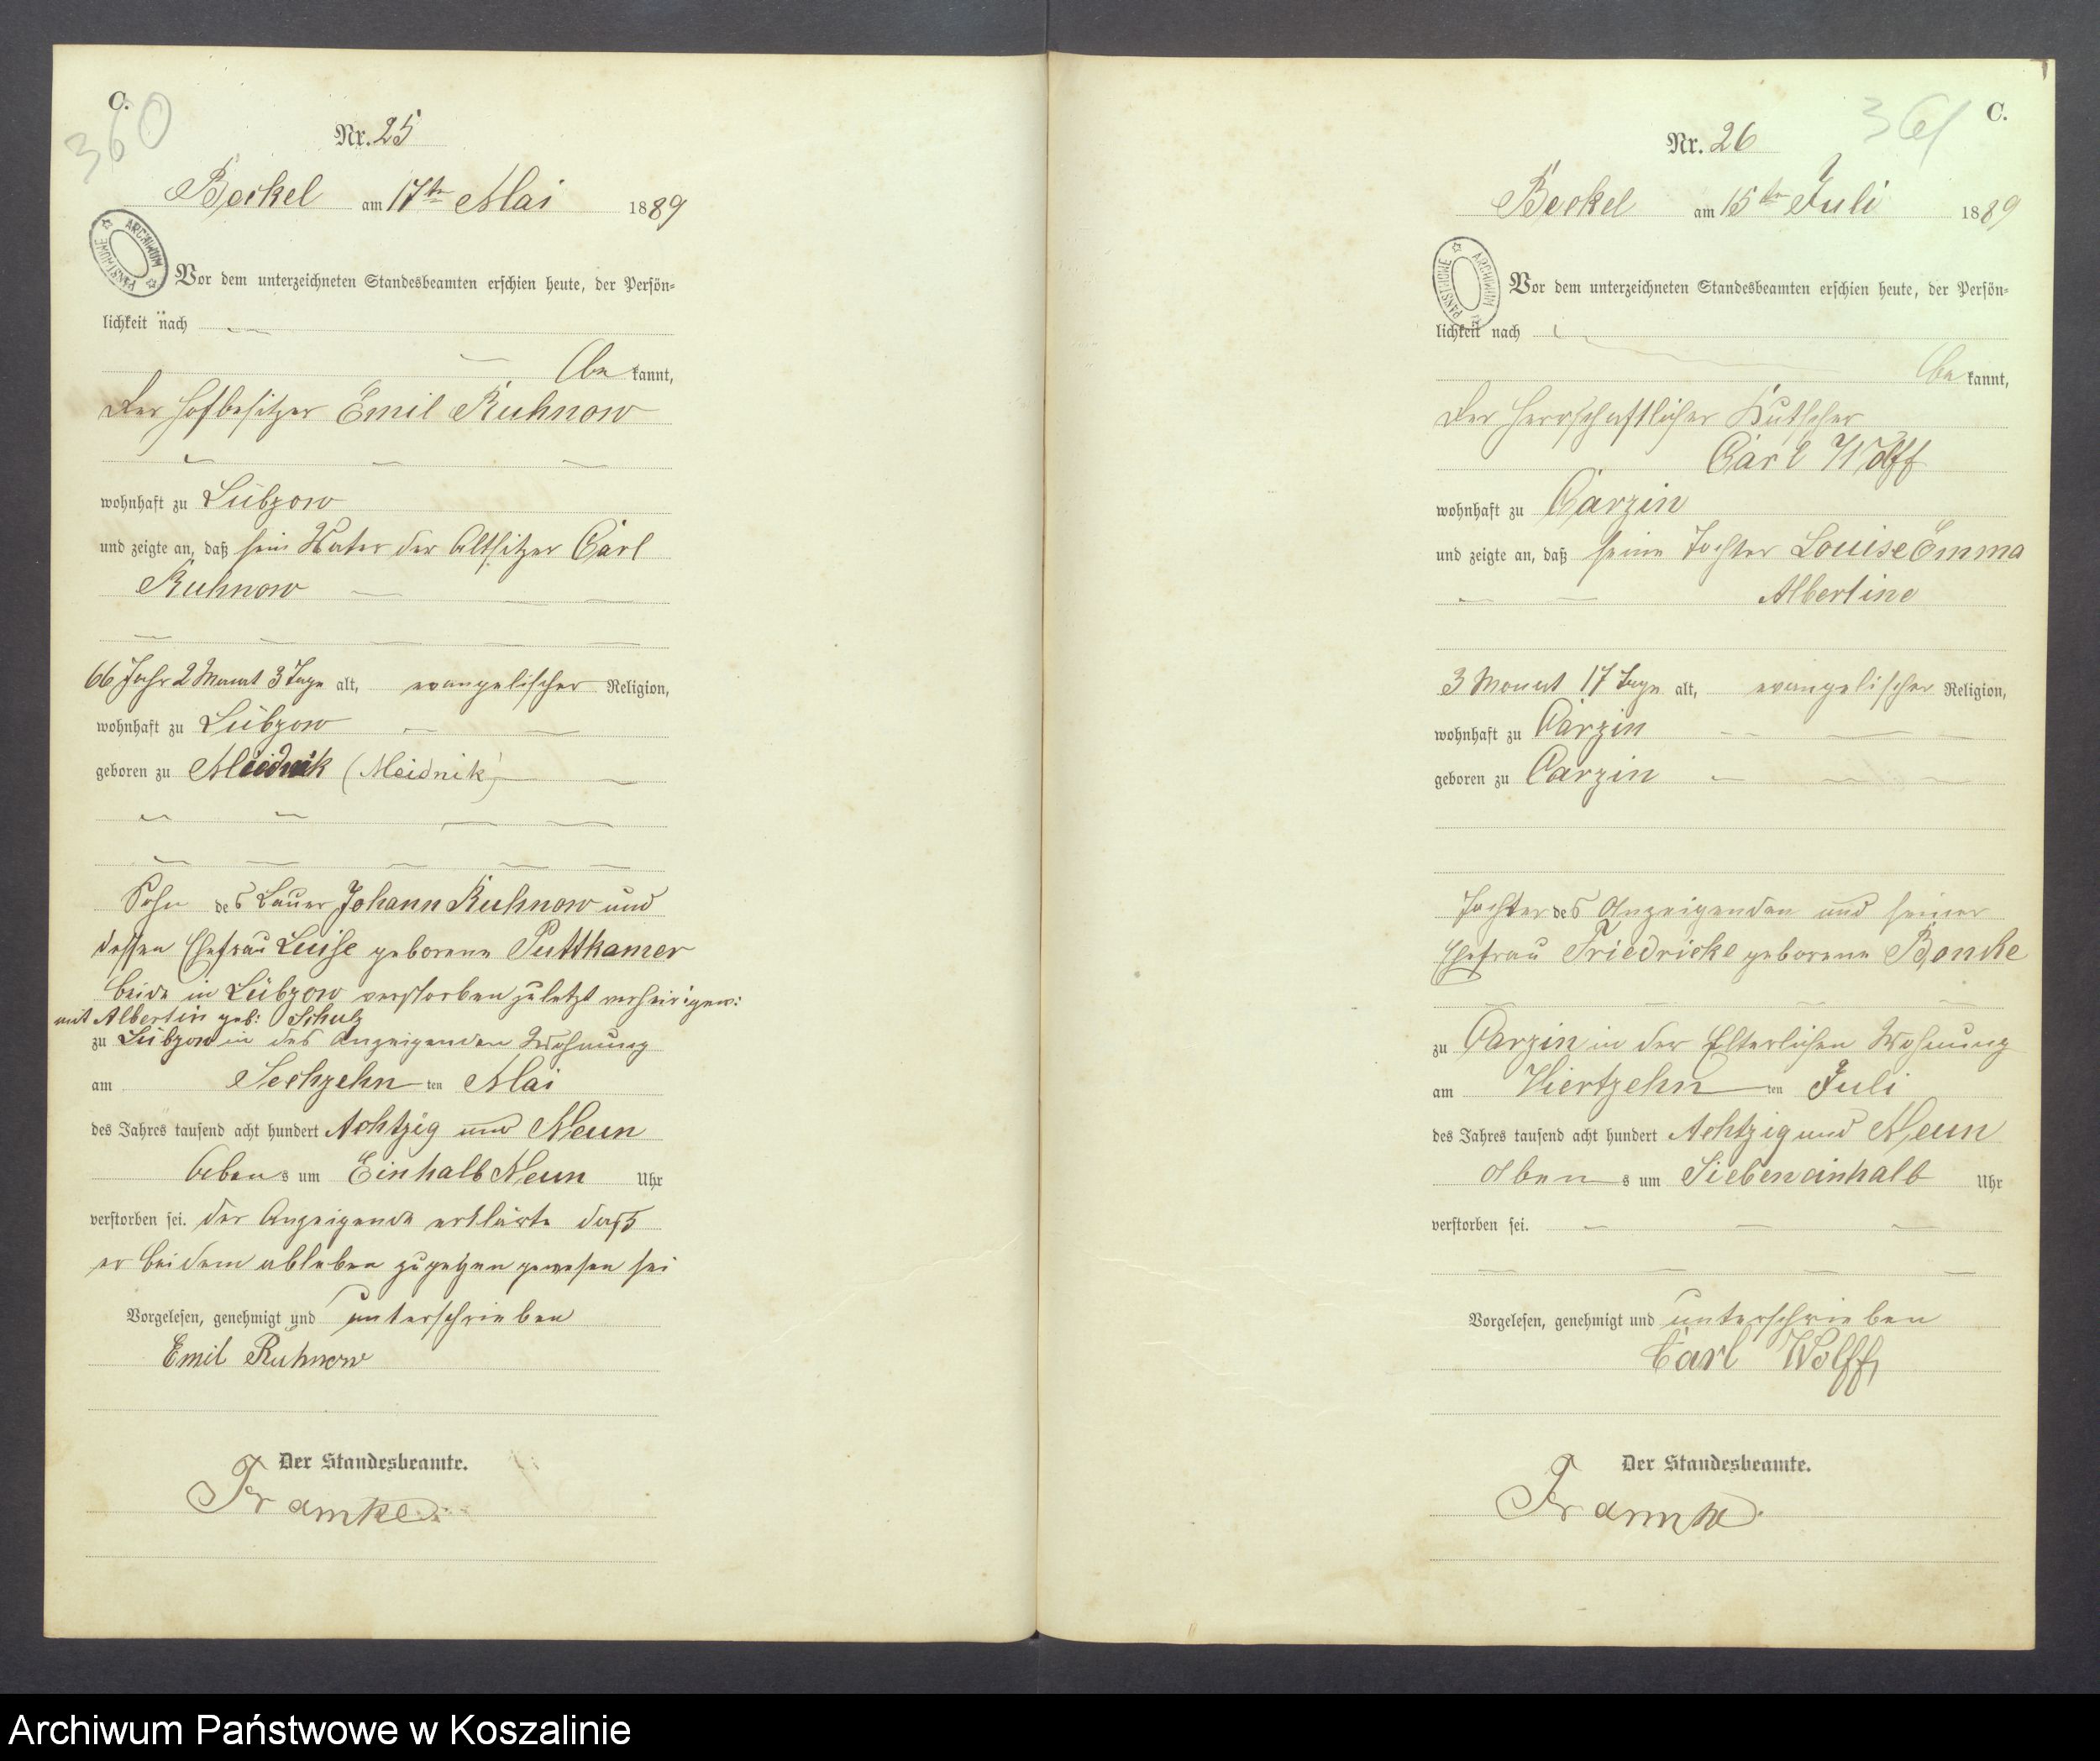 C.
360
Nr. 25
Beckel am 17ten Mai 1889
ARCHIWUM PAŃSTWOWE
Vor dem unterzeichneten Standesbeamten erschien heute, der Persön-
lichkeit nach
be kannt,
der Hofbesitzer Emil Kuhnow
wohnhaft zu Lübzow
und zeigte an, daß sein Vater der Altsitzer Carl
Kuhnow
66 Jahr 2 Monat 3 Tage alt, evangelischer Religion,
wohnhaft zu Lübzow
geboren zu (Meidnik)
Sohn des Bauer Johann Kuhnow und
dessen Ehefrau Luise geborene Puttkamer
beide in Lübzow verstorben zuletzt
mit Albertin geb: Schulz
zu Lübzow in des Anzeigenden Wohnung
am Sechzehn ten Mai
des Jahres tausend acht hundert Achtzig und Neun
Abens um Einhalb Neun Uhr
verstorben sei. der Anzeigende erklärte daß
er bei dem ableben zugegen gewesen sei
Vorgelesen, genehmigt und unterschrieben
Emil Kuhnow
Der Standesbeamte.
Framke
C.
361
Nr. 26
Beckel am 15ten Juli 1889
ARCHIWUM PAŃSTWOWE
Vor dem unterzeichneten Standesbeamten erschien heute, der Persön-
lichkeit nach
be kannt,
der Herrschaftlicher Kutscher
Carl Wolff
wohnhaft zu Carzin
und zeigte an, daß seine Tochter Louise Emma
Albertine
3 Monat 17 Tage alt, evangelischer Religion,
wohnhaft zu Carzin
geboren zu Carzin
Tochter des Anzeigenden und seiner
Ehefrau Friedricke geborene
zu Carzin in der Elterlichen Wohnung
am Viertzehn ten Juli
des Jahres tausend acht hundert Achtzig und Neun
Abens um Siebeneinhalb Uhr
verstorben sei.
Vorgelesen, genehmigt und unterschrieben
Carl Wolff
Der Standesbeamte.
Framke
Archiwum Państwowe w Koszalinie